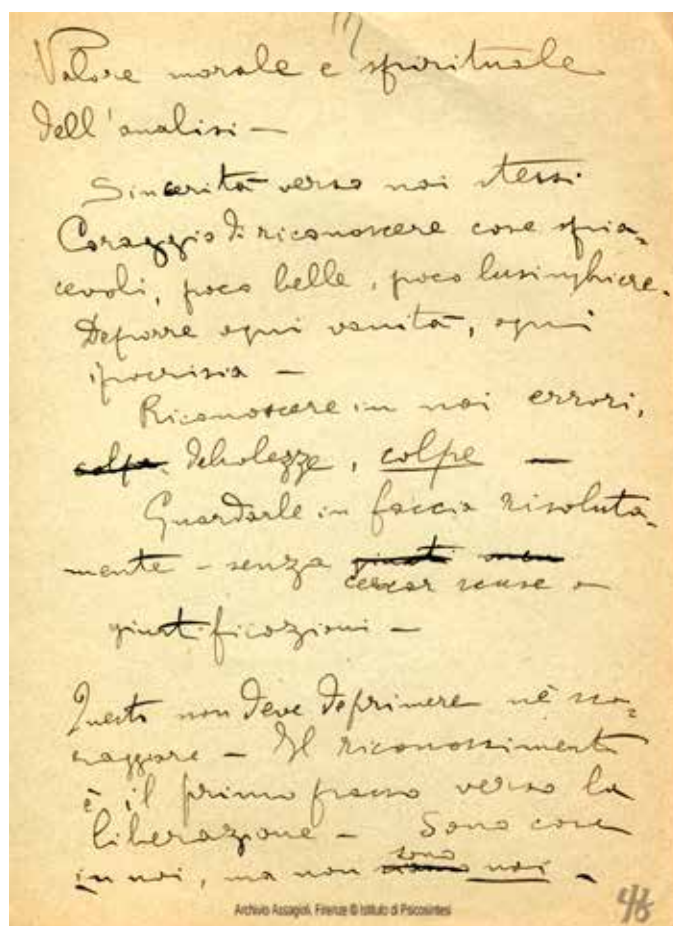 Valore morale e spirituale
dell'analisi —
Sincerità verso noi stessi
Coraggio di riconoscere cose spia-
cevoli, poco belle, poco lusinghiere.
Deporre ogni vanità, ogni
ipocrisia —
Riconoscere in noi errori,
colpe debolezze, colpe —
Guardarle in faccia risoluta-
mente — senza giusti
cercar scuse o
giustificazioni —
Questo non deve deprimere nè sco-
raggiare — Il riconoscimento
è il primo passo verso la
liberazione — Sono cose
sono
in noi, ma non siamo noi —
Archivio Assagioli, Firenze © Istituto di Psicosintesi